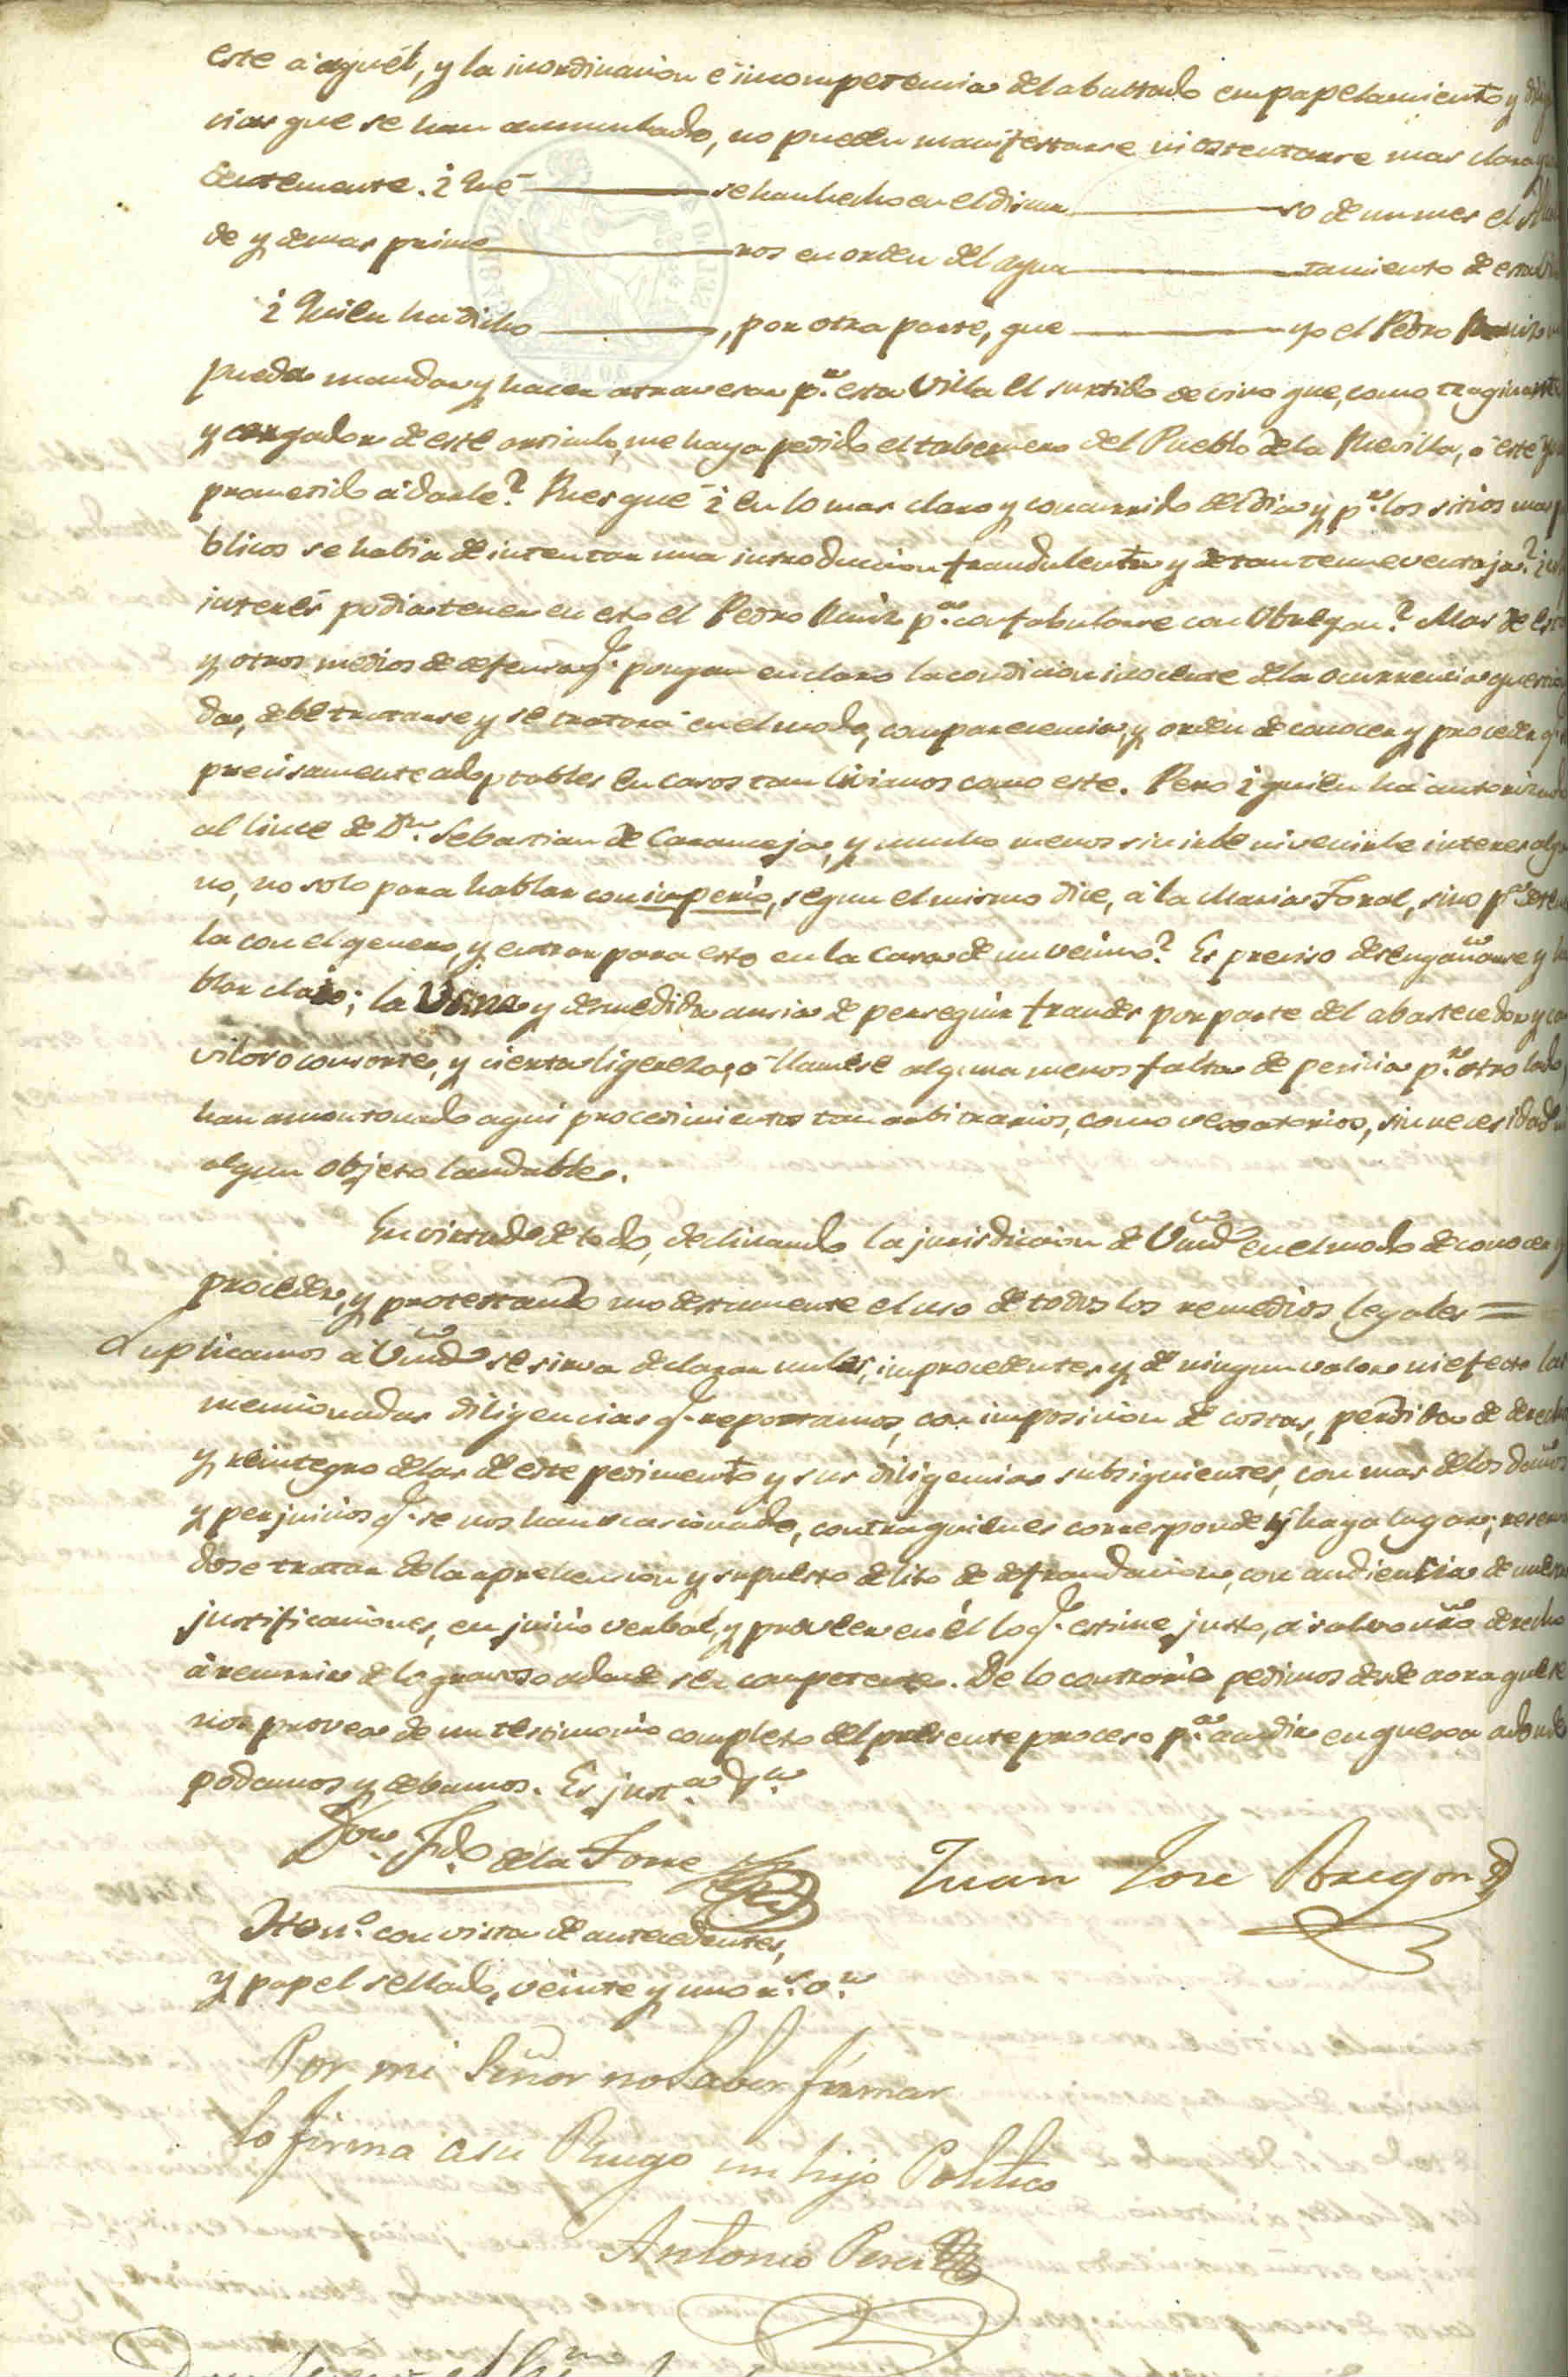 este á aquél, y la inordinacion é incompetencia del abultado empapelamiento y
cias que se han acumulado, no pueden manifestarse ni ostentarse mas clara y
dentemente. ¿Qué ——— se han hecho en el discur ——— so de un mes el
de y demas prime ——— ros en orden del ayun ——— tamiento de esta
¿Quien ha dicho ———, por otra parte, que ——— yo el Pedro
pueda mandar y hacer atravesar p.r esta Villa el surtido de vino que, como traginante
y cargador de este articulo, me haya pedido el tabernero del Pueblo de la Revilla, ó este yo
prometido á darle? Pues qué ¿en lo mas claro y concurrido del dia y p.r los sitios mas
blicos se habia de intentar una introduccion fraudulenta y de tan tenue ventaja? ¿
interés podia tener en esto el Pedro Ruiz p.a confabularse con Obregon? Mas de esto
y otros medios de defensa q.e pongan en claro la condicion inocente de la ocurrencia
da, debe tratarse y se tratará en el modo, comparecencia, y orden de conocer y proceder q.e
precisamente adoptables en casos tan livianos como este. Pero ¿quien ha autorizado
al lince de D.n Sebastian de Carameja, y mucho menos sin irle ni venirle interes algu
no, no solo para hablar con imperio, segun el mismo dice, á la Maria Toral, sino p.a detener
la con el genero, y entrar para esto en la Casa de un vecino? Es preciso desengañarse y ha
blar claro; la y desmedida ansia de perseguir fraudes por parte del abastecedor y ca
viloso consorte, y cierta ligereza, ó llamese alguna menos falta de pericia p.r otro lado,
han amontonado aqui procedimientos tan arbitrarios, como vejatorios, sin necesidad
algun objeto laudable.
En virtud de todo, declinando la jurisdiccion de Vmd en el modo de conocer y
proceder, y protestando modestamente el uso de todos los remedios legales =
Suplicamos á Vmd se sirva declarar nulas, improcedentes y de ningun valor ni efecto las
mencionadas diligencias q.e reportamos, con imposicion de costas, perdida de derechos
y reintegro de las de este pedimento y sus diligencias subsiguientes, con mas de los daños
y perjuicios q.e se nos han ocasionado, contra quienes corresponde y haya lugar; reservan
dose tratar de la aprehension y supuesto delito de defraudacion, con audiencia de nuestras
justificaciones, en juicio verbal, y proveer en él lo q.e estime justo, á salvo nro derecho
á recurrir de lo gravoso adonde sea competente. De lo contrario pedimos desde aora que se
nos provea de un testimonio completo del presente proceso p.a acudir en quexa adonde
podamos y debamos. Es just.a &.a
Fdo de la Torre
Juan Jose Obregon
Hon.o con vista de antecedentes,
y papel sellado, veinte y uno r.s v.n
Por mi Señor no Saber firmar
lo firma a su Ruego un hijo Politico
Antonio Perez